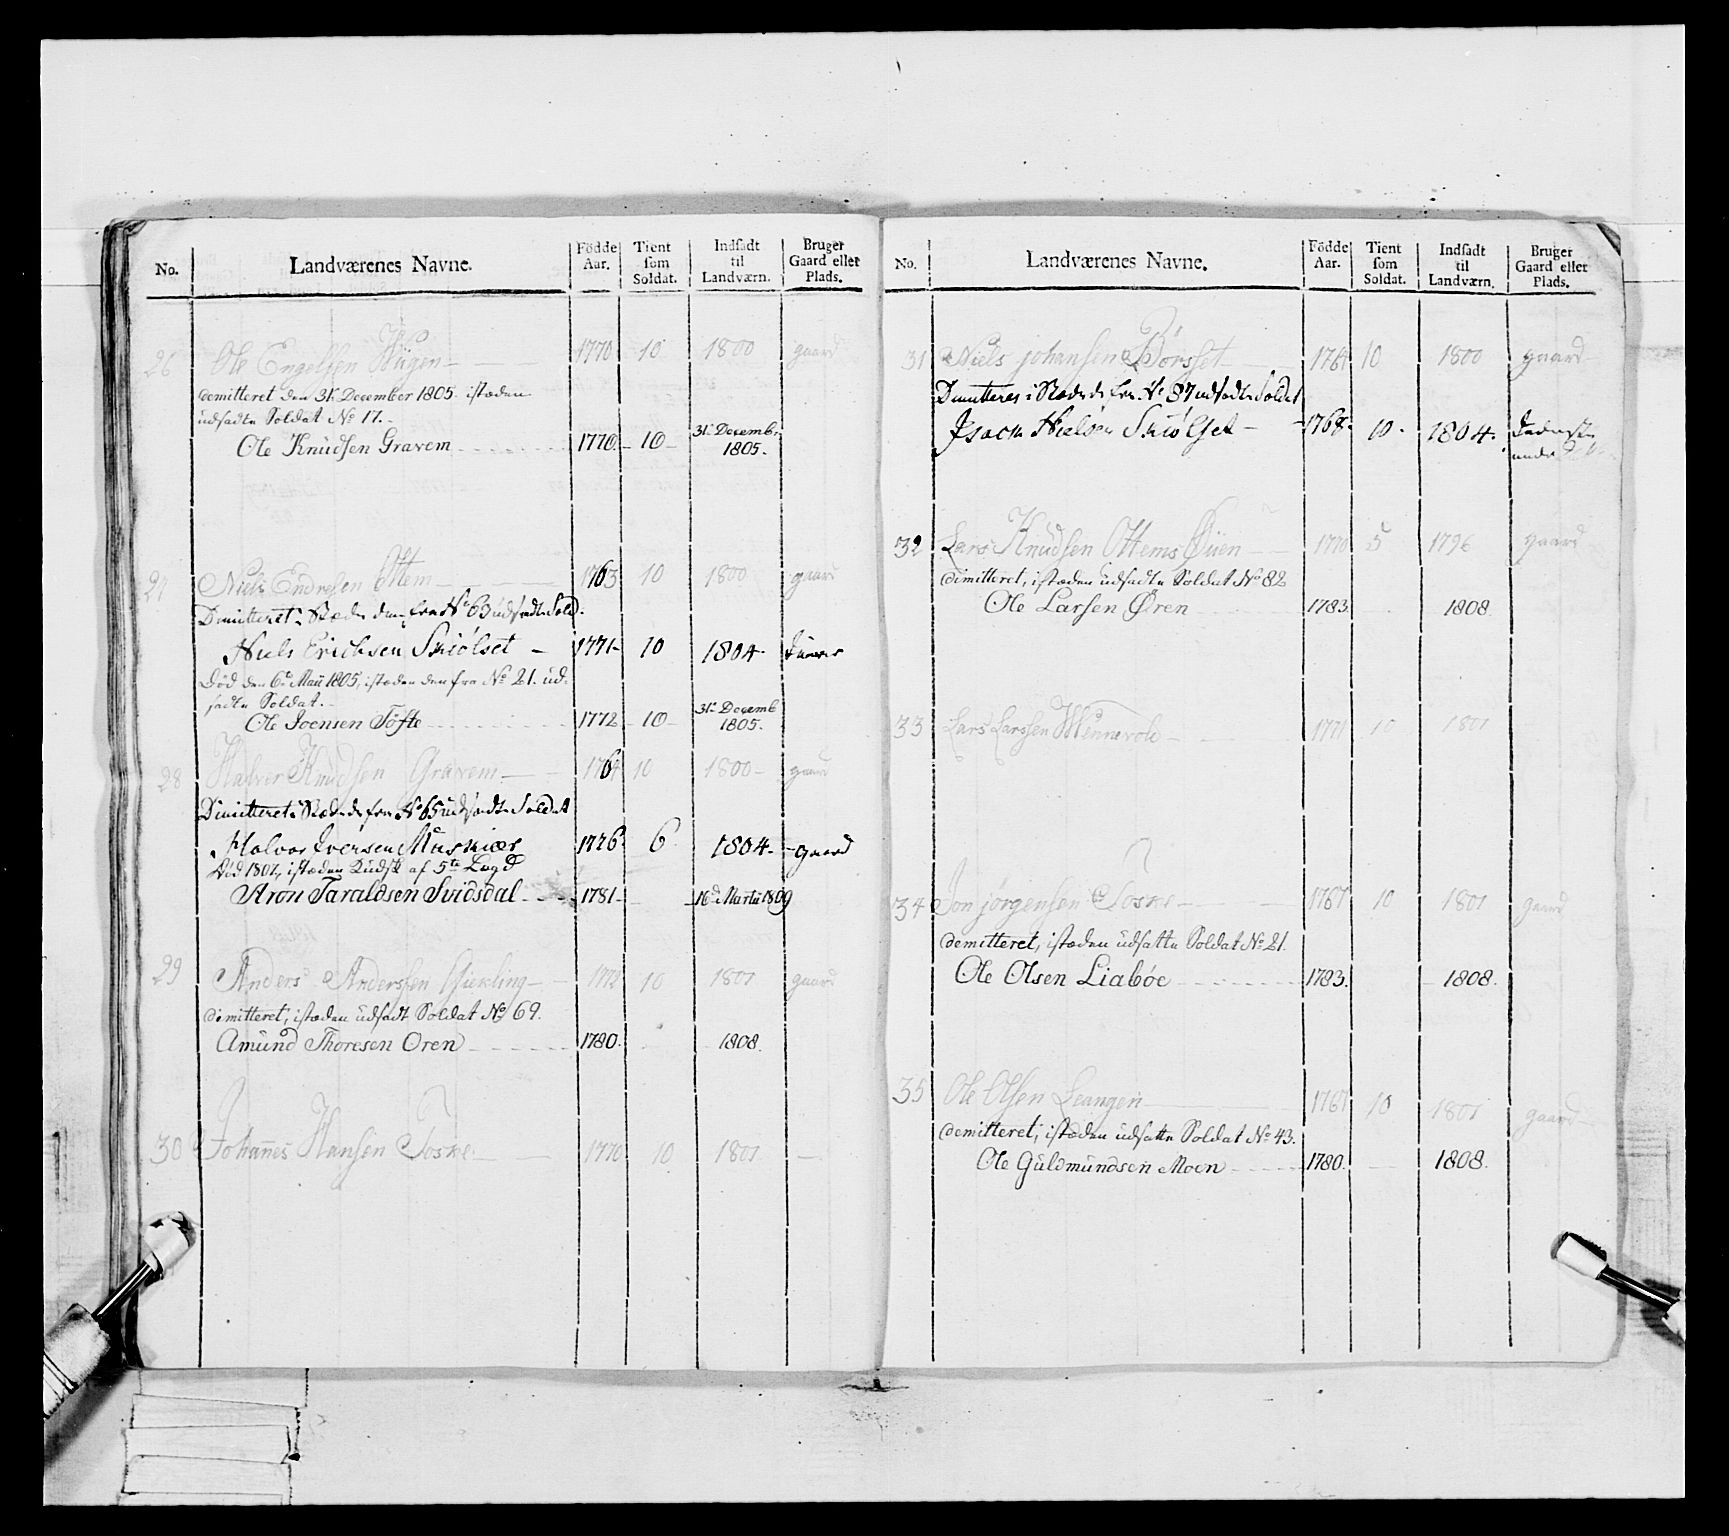 No.
Landværenes Navne.
Födde Aar.
Tient som Soldat.
Indsadt til Landværn.
Bruger Gaard eller Plads.
26 Ole Engelsen Hügen 1770 10 1800 gaard
demitteret den 31. December 1805. istæden
udsadte Soldat No 17.
Ole Knudsen Gravem 1770. 10 31. Decemb. 1805.
27 Niels Endresen Ottem 1763 10 1800 gaard
Dimitteret i Stæden den fra No 63 udsadte Sold.
Niels Erichsen Skiølset 1771 10 1804.
Død den 6. Maii 1805, istæden den fra No 21. ud-
sadte Soldat.
Ole Joensen Tofte 1772 10 31. Decemb 1805.
28 Halver Knudsen Gravem 1764 10 1800 gaard
Dimitteret i Stæden fra No 65 udsadte Soldat
Halvor Iversen Muskiær 1776 6 1804. gaard
istæden af 5te Lægd
Aron Taraldsen Svidsdal 1781 16d Martii 1809
29 Anders Anderssen Giekling 1772 10 1801 gaard
dimitteret, istæden udsadt Soldat No 69.
Amund Thoresen Oren 1780. 1808.
30 Johannes Hansen Toske 1770 10 1801
No.
Landværenes Navne.
Födde Aar.
Tient som Soldat.
Indsadt til Landværn.
Bruger Gaard eller Plads.
31 Niels johansen Børsset 1764 10 1800 gaard
Dimitteres i Stæden fra No 87 udsadte Soldat
Isach Nielsen Skiølset 1768. 10. 1804.
32 Lars Knudsen Ottems Øüen 1770 5 1796 gaard
dimitteret, istæden udsadte Soldat No 82
Ole Larsen Øren 1783. 1808.
33 Lars Larssen Wennevole 1771 10 1801
34 Jon jørgensen Toske 1767 10 1801 gaard
demitteret, istæden udsatte Soldat No 21.
Ole Olsen Liabøe 1783. 1808.
35 Ole Olsen Leangen 1767 10 1801 gaard
demitteret, istæden udsatte Soldat No 43.
Ole Guldmundsen Moen 1780. 1808.